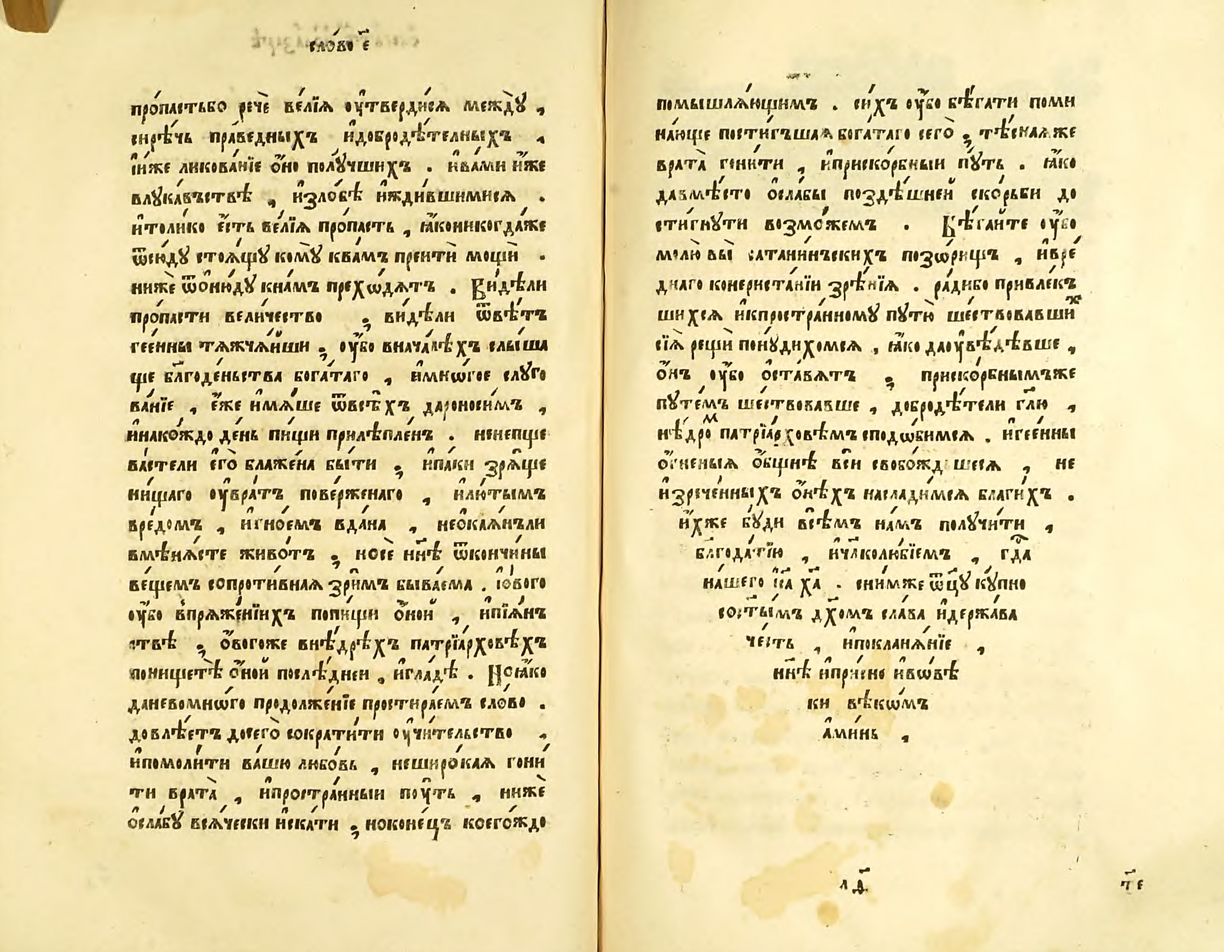 сло́во е҃
про́пастьбо речѐ ве́лїѧ ᲂу҆тверди́сѧ междꙋ̀ ,
сирѣ́чь пра́ведныхъ и҆добродѣ́тельныхъ ,
и҆́иже ликова́нїе ѻ҆́но полꙋ́чшихъ . и҆ва́ми и҆́же
влꙋка́въствѣ , и҆ꙁло́бѣ и҆жди́вшимисѧ .
и҆толи́ко є҆́сть ве́лїѧ про́пасть , ꙗ҆́коникогда́же
ѿсю́дꙋ стоѧ́щꙋ комꙋ̀ ква́мъ преитѝ мо́щи .
нижѐ ѿѻ҆нꙋ́дꙋ кна́мъ прехѡ́дѧтъ . Ви́дѣли
про́пасти вели́чество , ви́дѣли ѿвѣ́тъ
гее́нны тѧжча́йши , ᲂу҆́бо внача́лѣхъ слы́ша
ще бл҃годе́ньства бога́таго , и҆мно́гое слꙋго
ва́нїе , є҆́же и҆мѧ́ше ѿвсѣ́хъ дароноси́мъ ,
и҆нако́ждо де́нь пи́щи прилѣпле́нъ . ненепще
ва́стели є҆го̀ блаже́на бы́ти , и҆па́ки ꙁрѧ́ще
ни́щаго ᲂу҆вра́тъ пове́рженаго , и҆лю́тымъ
вре́домъ , и҆гно́емъ вда́на , неѻ҆каѧ́нъли
вмѣнѧ́сте живо́тъ , носе нн҃ѣ ѿкончи́ны
ве́щемъ сопроти́внаѧ ꙁри́мъ быва́ема . і҆о́вого
ᲂу҆́бо впрѧже́нїихъ попи́щи ѻ҆́ной , и҆пїѧ́н
ствѣ , ѻ҆́вогоже внѣ́дрѣхъ патрїа́рховѣхъ
понищетѣ̀ ѻ҆́ной послѣ́дней , и҆гла́дѣ . Ноꙗ҆́ко
даневомно́го продолже́нїе простира́емъ сло́во .
довлѣ́етъ досего̀ сократи́ти ᲂу҆чи́тельство ,
и҆помоли́ти ва́шю любо́вь , неширо́каѧ гони
ти врата̀ , и҆простра́нныи пᲂу́ть , нижѐ
ѻ҆сла́бꙋ всѧ́чески и҆ска́ти , ноконе́цъ коего́ждо
помышлѧ́ющимъ . си́хъ ᲂу҆́бо бѣ́гати поми
на́юще пости́гъшаѧ бога́таго сего̀ , тѣ́снаѧже
врата̀ гони́ти , и҆приско́рбныи пꙋ́ть . ꙗ҆́ко
давмѣ́сто ѻ҆сла́бы поꙁдѣ́шней ско́рьби до
сти́гнꙋти воꙁмо́жем . Бѣ́гайте ᲂу҆́бо
молю́ вы̀ сатани́нъскихъ поꙁѡ́рищъ , и҆вре́
днаго конериста́нїи ꙁрѣ́нїѧ . ра́дибо привле́к
шихсѧ и҆кпростра́нномꙋ пꙋтю̀ ше́ствовавши
сїѧ̀ рещѝ понꙋ́дихомсѧ , ꙗ҆́ко даᲂу҆вѣ́дѣвше ,
ѻ҆́нъ ᲂу҆́бо ѻ҆ста́вѧтъ , приско́рбнымъже
пꙋте́мъ ше́ствовавше , добродѣ́тели гл҃ю ,
нѣ́дро патрїа́рховѣмъ сподо́бимсѧ . и҆гее́нны
ѻ҆́гненыѧ ѻ҆́бщиѣ всѝ свобо́ждшесѧ , не
и҆ꙁрече́нныхъ ѻ҆нѣ́хъ насла́димсѧ благи́хъ .
и҆́хже бꙋ́ди всѣ́мъ на́мъ полꙋчи́ти ,
бл҃года́тїю , и҆чл҃колю́бїемъ , гд҃а
на́шего і҆с҃а хр҃а . сни́мже ѿц҃ꙋ кꙋ́пно
сост҃ы́мъ дх҃омъ сла́ва и҆держа́ва
че́сть , и҆покланѧ́нїе ,
нн҃ѣ и҆при́сно и҆вовѣ
ки вѣкѡ́мъ
а҆ми́нь ,
л҃д
ч҃е